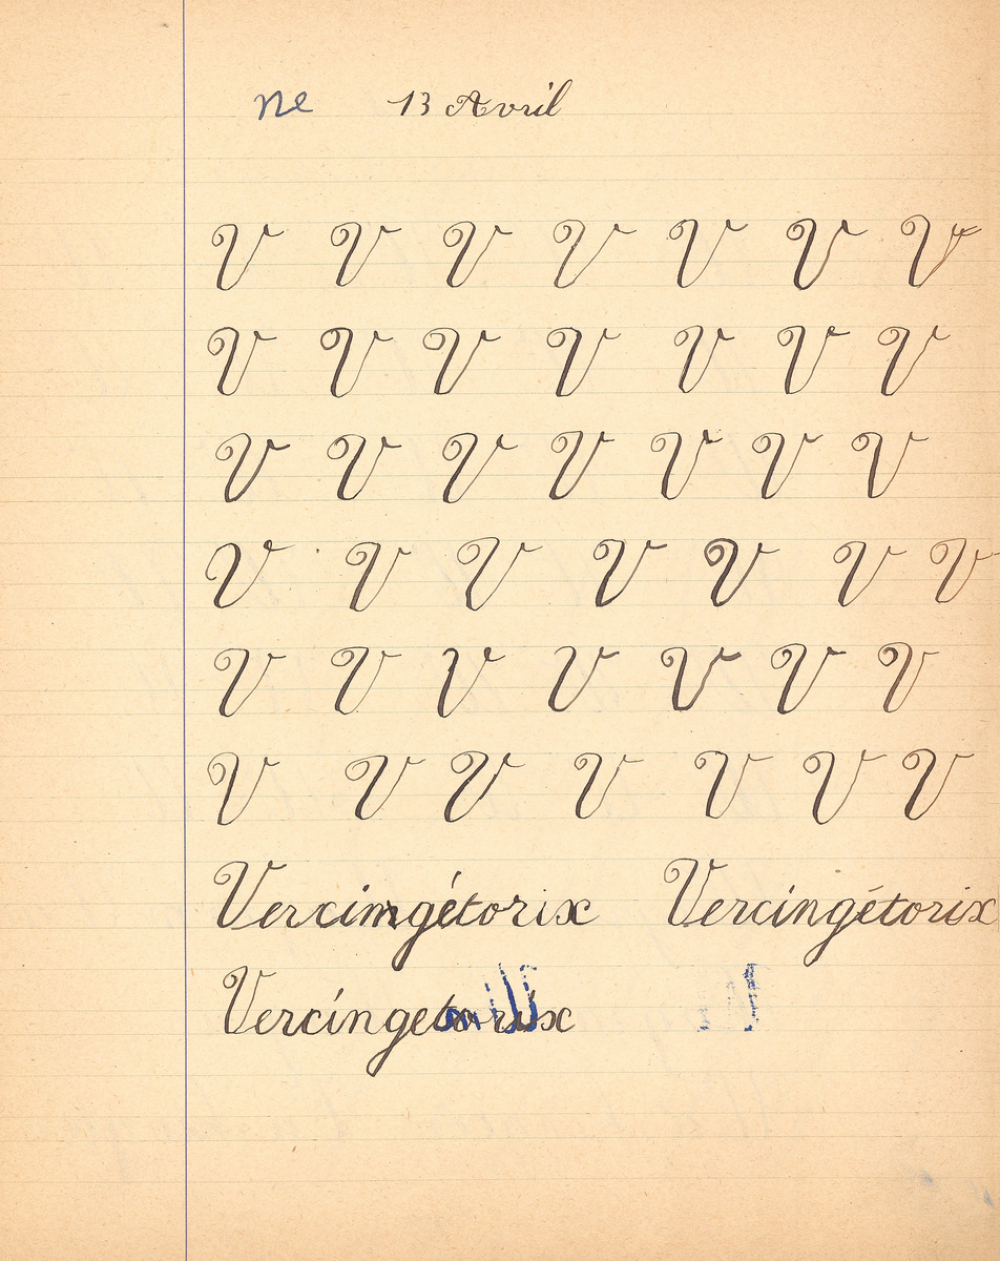 ne 13 Avril
V V V V V V V
V V V V V V V
V V V V V V V
V V V V V V V
V V V V V V V
V V V V V V V
Vercimgétorix Vercingétorix
Vercíngetorix